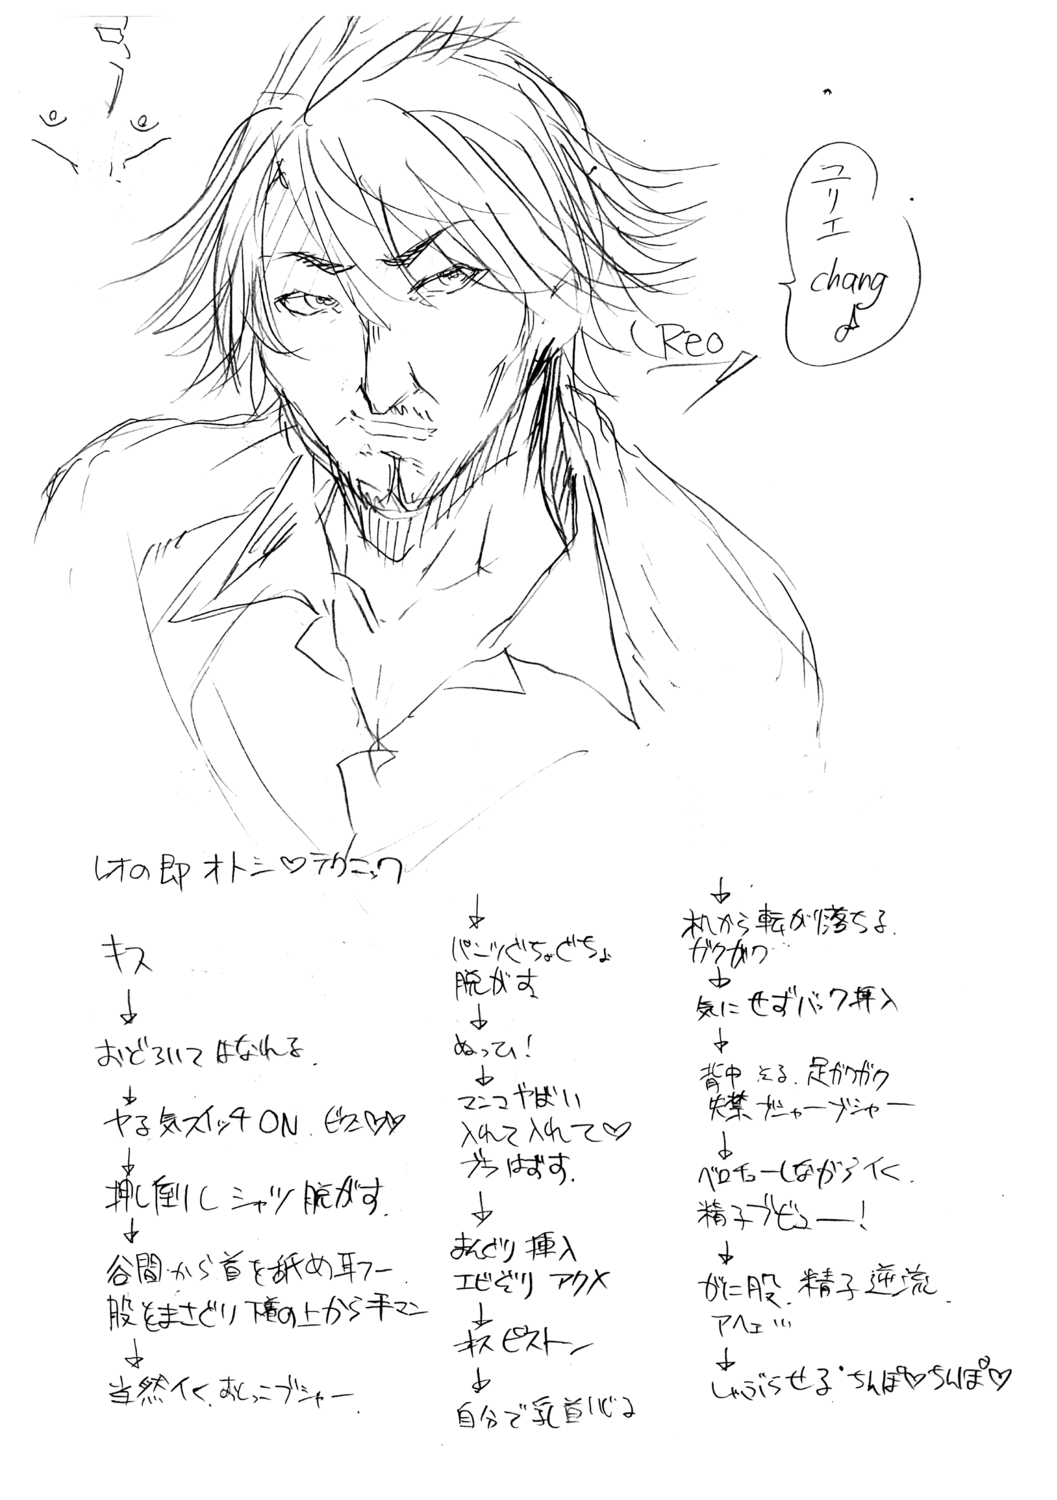 ユリエ
chang
Reo
レオの即オトシ♡テクニック
キス
↓
おどろいてはなれる.
↓
ヤる気スイッチON.ビクン♡♡
↓
押し倒しシャツ脱がす.
↓
谷間から首を舐め耳フー
股をまさぐり下着の上から手マン
↓
当然イく.おしっこブシャー.
↓
パンツぐちょぐちょ
脱がす
↓
ぬっひ!
↓
マンコやばい
入れて入れて♡
ブラはずす.
↓
まんぐり挿入
エビぞりアクメ
↓
キスピストン
↓
自分で乳首いじる
↓
机から転がり落ちる.
ガクガク
↓
気にせずバック挿入
↓
背中そる.足ガクガク
失禁ブシャーブシャー
↓
ベロチューしながらイく.
精子ブビュー!
↓
がに股.精子逆流.
アヘェ…
↓
しゃぶらせる・ちんぽ♡ちんぽ♡